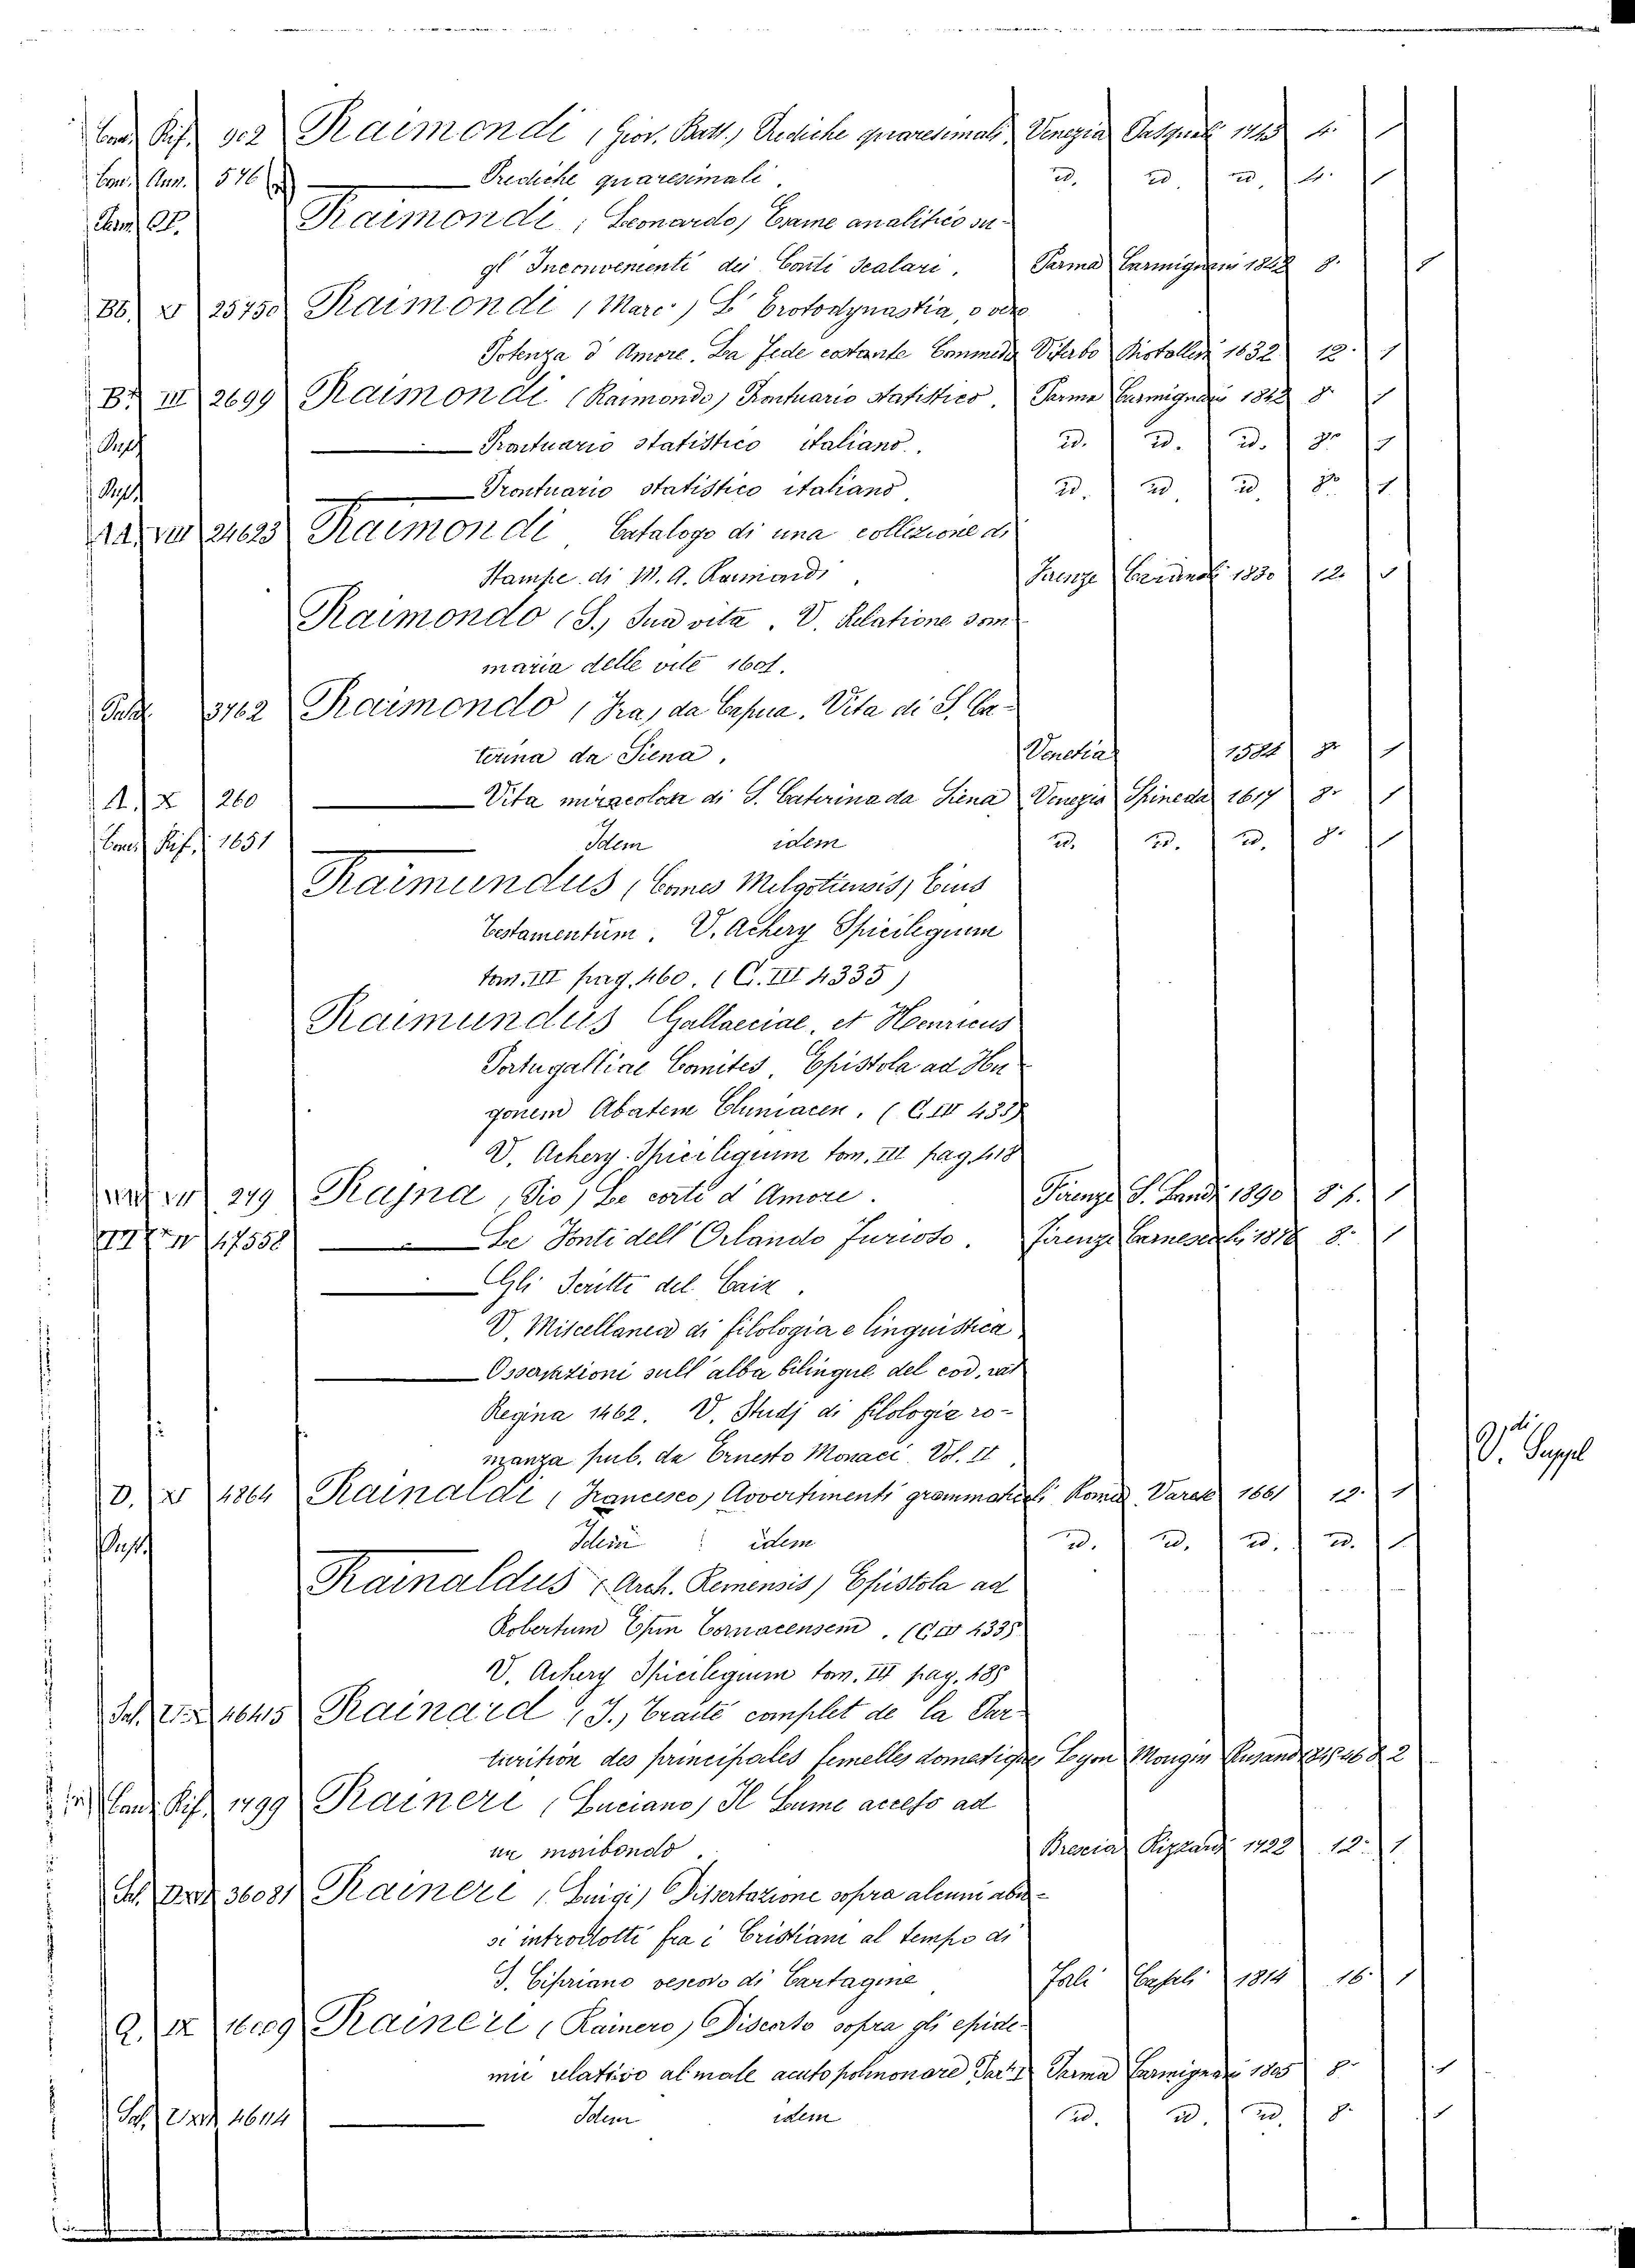 Conv. Rif. 902 Raimondi (Giov. Batt.) Prediche quaresimali Venezia Pasquali 1743 4. 1
Con. Ann. 576 Prediche quaresimali. id. id. id. 4. 1
Raimondi (Leonardo) Esame analitico su-
gl' Inconvenienti dei Conti Scalari. Parma Carmignani 1828 8. 1
Bb. V 25750 Raimondi (Marc.) La Protodynastia, o vero
Potenza d'Amore. La fede costante Commedia Viterbo 1632 12. 1
B. III 2699 Raimondi (Raimondo) Prontuario statistico. Parma Carmignani 8. 1
Prontuario statistico italiano. id. id. id. 8. 1
Prontuario statistico italiano. id. id. id. 8. 1
VIII 24623 Raimondi Catalogo di una collezione di
Stampe di M. A. Raimondi. Firenze Cardinali 1830 12. 1
Raimondo (S.) Sua vita. V. Relatione som
maria delle vite 1601.
3762 Raimondo (Fra) da Capua. Vita di S. Ca-
terina da Siena. Venetia 1584 8. 1
A. X 260 Vita miracolosa di S. Caterina da Siena Venezia Spineda 1617 8. 1
Conv. Rif. 1651 Idem idem id. id. id. 8. 1
Raimundus (Comes Melgotiensis) Eius
Testamentum. V. Achery Spicilegium
tom. III pag. 460. (C. III 4335)
Raimundus Gallaeciae, et Henricus
Portugalliae Comites. Epistola ad Hu
gonem Abatem Cluniacen. (C. III 4335)
V. Achery. Spicilegium tom. III pag. 418
279 Rajna (Pio) Le corti d'Amore. Firenze S. Landi 1890 8 p. 1
47558 Le Fonti dell'Orlando Furioso. Firenze Carnesecchi 1876 8. 1
Gli Scritti del Caix.
V. Miscellanea di filologia e linguistica
Osservazioni sull'alba bilingue del cod. vat
Regina 1462. V. Studj di filologia ro-
manza pub. da Ernesto Monaci Vol. II
V. di Suppl
D. V 4864 Rainaldi (Francesco) Avvertimenti grammaticali Roma Varese 1661 12. 1
Idem idem id. id. id. id. 1
Rainaldus (Arch. Remensis) Epistola ad
Robertum Epun Cornacensem. (C. III 4335
V. Achery Spicilegium tom. III pag. 485
46415 Rainard (J.) Traité complet de la Par-
turition des principales femelles domestiques Lyon Mongin Rusand 8 2
Conv. Rif. 1499 Raineri (Luciano) Il Lume acceso ad
un moribondo. Brescia Rizzardi 1722 12. 1
36081 Raineri (Luigi) Dissertazione sopra alcuni abu-
si introdotti fra i Cristiani al tempo di
S. Cipriano vescovo di Cartagine Casali 1814 16. 1
Q. IX Raineri (Rainero) Discorso sopra gli epide-
mii relativo al male acuto polmonare Part. I Parma Carmignani 1805 8. 1
Idem idem id. id. id. 8. 1